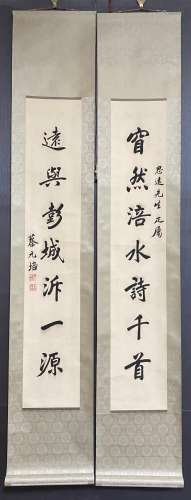 思遠先生正屬
窅然涪水詩千首
遠與彭城泝一源
蔡元培